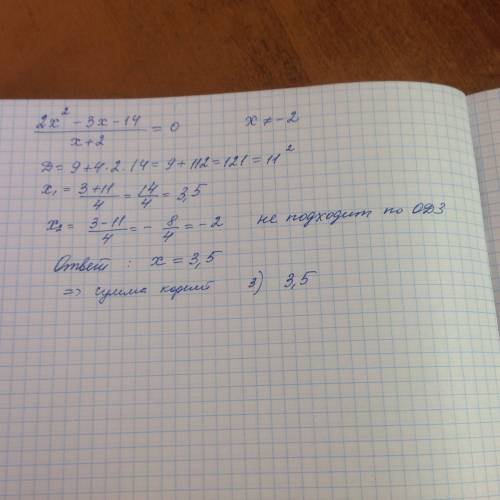 (2x² - 3x - 14)/(x + 2) = 0 x ≠ -2
D = 9 + 4·2·14 = 9 + 112 = 121 = 11²
x₁ = (3+11)/4 = 14/4 = 3,5
x₂ = (3-11)/4 = - 8/4 = -2 не подходит по ОДЗ
Ответ: x = 3,5
=> сумма корней 3) 3,5